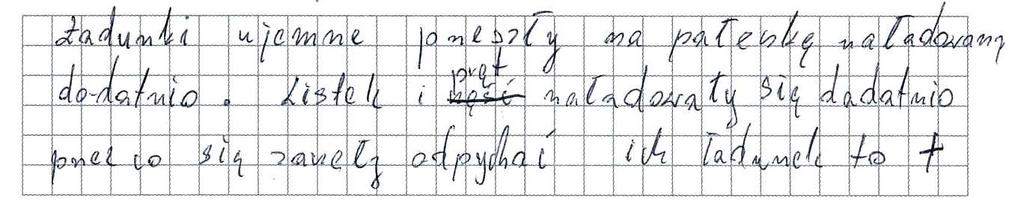 Ładunki ujemne przeszły na pałeczkę naładowaną
dodatnio. Listek i pręt naładowały się dadatnio
przez co się zaczęły odpychać ich ładunek to +